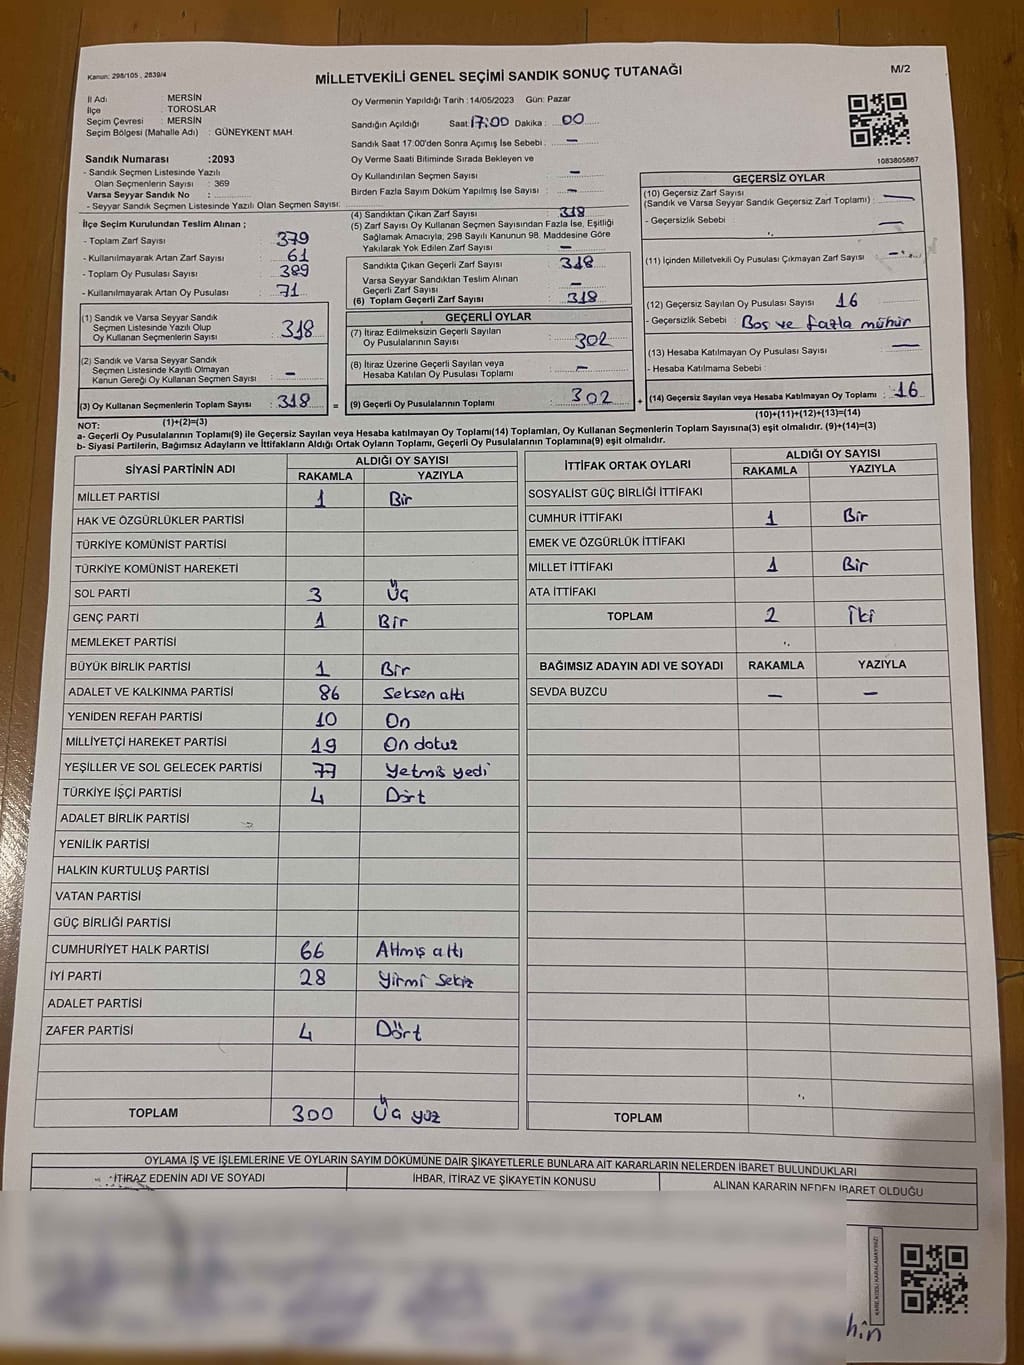 Kanun: 298/105 , 2839/4
MİLLETVEKİLİ GENEL SEÇİMİ SANDIK SONUÇ TUTANAĞI
M/2
İl Adı : MERSİN
İlçe : TOROSLAR
Seçim Çevresi : MERSİN
Seçim Bölgesi (Mahalle Adı) : GÜNEYKENT MAH.
Sandık Numarası :2093
- Sandık Seçmen Listesinde Yazılı
Olan Seçmenlerin Sayısı : 369
Varsa Seyyar Sandık No :
- Seyyar Sandık Seçmen Listesinde Yazılı Olan Seçmen Sayısı:
Oy Vermenin Yapıldığı Tarih :14/05/2023 Gün: Pazar
Sandığın Açıldığı Saat: 17:00 Dakika : 00
Sandık Saat 17:00'den Sonra Açımış İse Sebebi : –
Oy Verme Saati Bitiminde Sırada Bekleyen ve
Oy Kullandırılan Seçmen Sayısı : –
Birden Fazla Sayım Döküm Yapılmış İse Sayısı : –
1083805867
İlçe Seçim Kurulundan Teslim Alınan ;
- Toplam Zarf Sayısı : 379
- Kullanılmayarak Artan Zarf Sayısı : 61
- Toplam Oy Pusulası Sayısı : 389
- Kullanılmayarak Artan Oy Pusulası : 71
(1) Sandık ve Varsa Seyyar Sandık
Seçmen Listesinde Yazılı Olup
Oy Kullanan Seçmenlerin Sayısı : 318
(2) Sandık ve Varsa Seyyar Sandık
Seçmen Listesinde Kayıtlı Olmayan
Kanun Gereği Oy Kullanan Seçmen Sayısı : –
(3) Oy Kullanan Seçmenlerin Toplam Sayısı : 318
(1)+(2)=(3)
(4) Sandıktan Çıkan Zarf Sayısı : 318
(5) Zarf Sayısı Oy Kullanan Seçmen Sayısından Fazla İse, Eşitliği
Sağlamak Amacıyla, 298 Sayılı Kanunun 98. Maddesine Göre
Yakılarak Yok Edilen Zarf Sayısı : –
Sandıkta Çıkan Geçerli Zarf Sayısı : 318
Varsa Seyyar Sandıktan Teslim Alınan
Geçerli Zarf Sayısı : –
(6) Toplam Geçerli Zarf Sayısı : 318
GEÇERLİ OYLAR
(7) İtiraz Edilmeksizin Geçerli Sayılan
Oy Pusulalarının Sayısı : 302
(8) İtiraz Üzerine Geçerli Sayılan veya
Hesaba Katılan Oy Pusulası Toplamı : –
= (9) Geçerli Oy Pusulalarının Toplamı : 302
GEÇERSİZ OYLAR
(10) Geçersiz Zarf Sayısı
(Sandık ve Varsa Seyyar Sandık Geçersiz Zarf Toplamı) : –
- Geçersizlik Sebebi : –
(11) İçinden Milletvekili Oy Pusulası Çıkmayan Zarf Sayısı : –
(12) Geçersiz Sayılan Oy Pusulası Sayısı : 16
- Geçersizlik Sebebi : Boş ve fazla mühür
(13) Hesaba Katılmayan Oy Pusulası Sayısı : –
- Hesaba Katılmama Sebebi :
+ (14) Geçersiz Sayılan veya Hesaba Katılmayan Oy Toplamı : 16
(10)+(11)+(12)+(13)=(14)
NOT:
a- Geçerli Oy Pusulalarının Toplamı(9) ile Geçersiz Sayılan veya Hesaba katılmayan Oy Toplamı(14) Toplamları, Oy Kullanan Seçmenlerin Toplam Sayısına(3) eşit olmalıdır. (9)+(14)=(3)
b- Siyasi Partilerin, Bağımsız Adayların ve İttifakların Aldığı Ortak Oyların Toplamı, Geçerli Oy Pusulalarının Toplamına(9) eşit olmalıdır.
SİYASİ PARTİNİN ADI ALDIĞI OY SAYISI
RAKAMLA YAZIYLA
MİLLET PARTİSİ 1 Bir
HAK VE ÖZGÜRLÜKLER PARTİSİ
TÜRKİYE KOMÜNİST PARTİSİ
TÜRKİYE KOMÜNİST HAREKETİ
SOL PARTİ 3 Üç
GENÇ PARTİ 1 Bir
MEMLEKET PARTİSİ
BÜYÜK BİRLİK PARTİSİ 1 Bir
ADALET VE KALKINMA PARTİSİ 86 Seksen altı
YENİDEN REFAH PARTİSİ 10 On
MİLLİYETÇİ HAREKET PARTİSİ 19 On dokuz
YEŞİLLER VE SOL GELECEK PARTİSİ 77 Yetmiş yedi
TÜRKİYE İŞÇİ PARTİSİ 4 Dört
ADALET BİRLİK PARTİSİ
YENİLİK PARTİSİ
HALKIN KURTULUŞ PARTİSİ
VATAN PARTİSİ
GÜÇ BİRLİĞİ PARTİSİ
CUMHURİYET HALK PARTİSİ 66 Altmış altı
İYİ PARTİ 28 Yirmi Sekiz
ADALET PARTİSİ
ZAFER PARTİSİ 4 Dört
TOPLAM 300 Üç yüz
İTTİFAK ORTAK OYLARI ALDIĞI OY SAYISI
RAKAMLA YAZIYLA
SOSYALİST GÜÇ BİRLİĞİ İTTİFAKI
CUMHUR İTTİFAKI 1 Bir
EMEK VE ÖZGÜRLÜK İTTİFAKI
MİLLET İTTİFAKI 1 Bir
ATA İTTİFAKI
TOPLAM 2 İki
BAĞIMSIZ ADAYIN ADI VE SOYADI RAKAMLA YAZIYLA
SEVDA BUZCU – –
TOPLAM
OYLAMA İŞ VE İŞLEMLERİNE VE OYLARIN SAYIM DÖKÜMÜNE DAİR ŞİKAYETLERLE BUNLARA AİT KARARLARIN NELERDEN İBARET BULUNDUKLARI
İTİRAZ EDENİN ADI VE SOYADI İHBAR, İTİRAZ VE ŞİKAYETİN KONUSU ALINAN KARARIN NEDEN İBARET OLDUĞU
KARE KODU KARALAMAYINIZ!